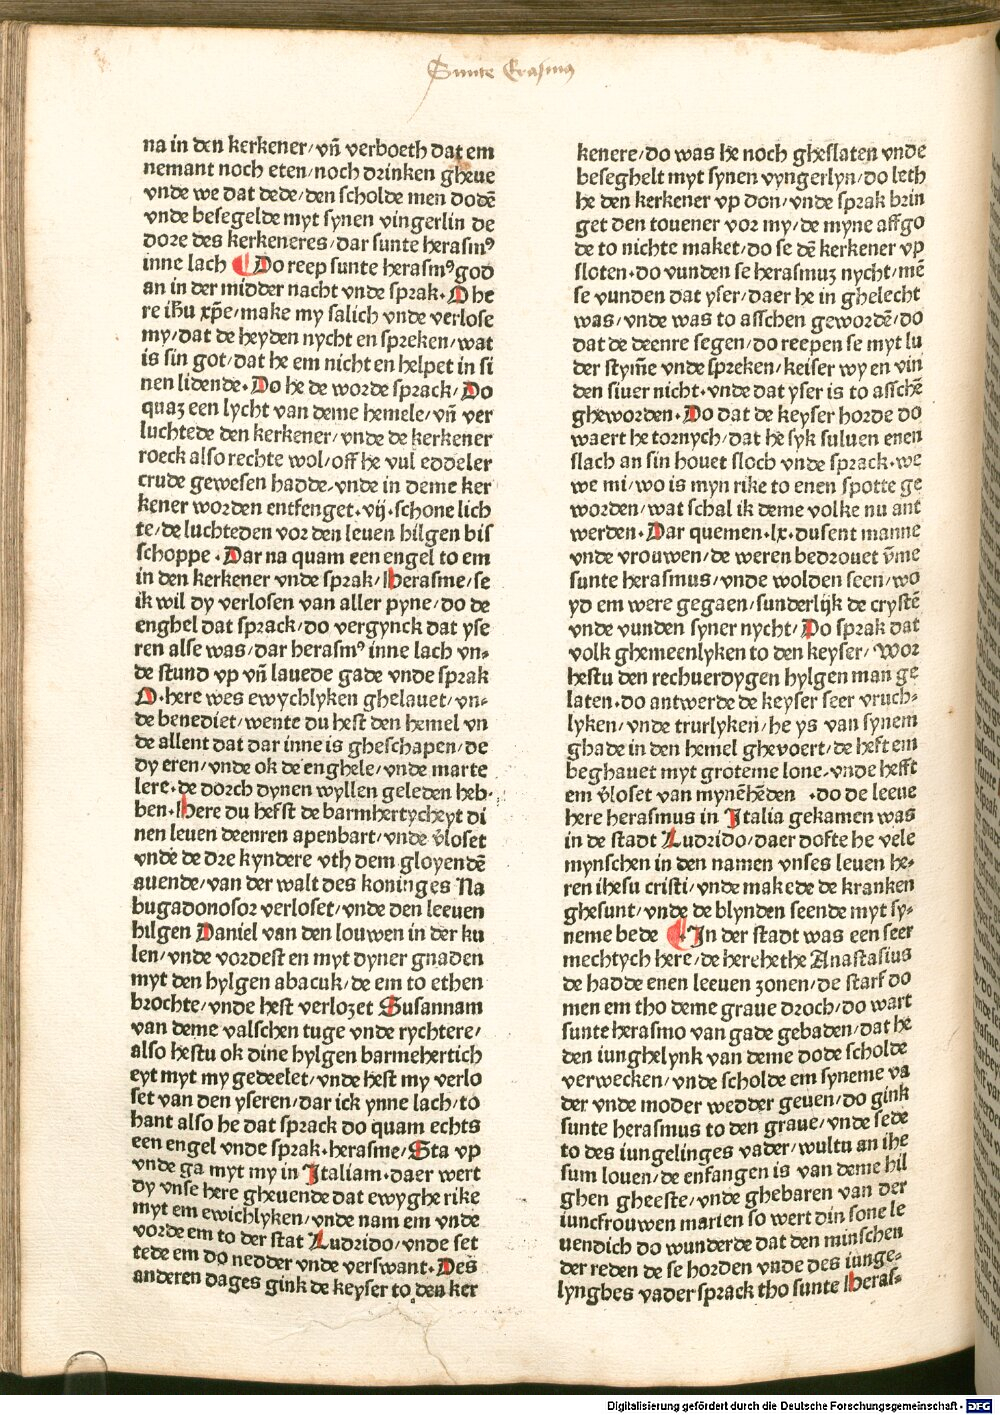 Sunte Erasmus
na in den kerkener/vn̄ verboeth dat em
nemant noch eten/noch drinken gheue
vnde we dat dede/den scholde men dodē
vnde besegelde myt synen vingerlin de
dore des kerkeneres/dar sunte herasmꝰ
inne lach Do reep sunte herasmꝰ god
an in der midder nacht vnde sprak. O he
re ihū xp̄e/make my salich vnde verlose
my/dat de heyden nycht en spreken/wat
is sin got/dat he em nicht en helpet in si
nen lidende. Do he de worde sprack/Do
quaz een lycht van deme hemele/vn̄ ver
luchtede den kerkener/vnde de kerkener
roeck also rechte wol/off he vul eddeler
crude gewesen hadde/vnde in deme ker
kener worden entfenget.vij.schone lich
te/de luchteden vor den leuen hilgen bis
schoppe. Dar na quam een engel to em
in den kerkener vnde sprak/Herasme/se
ik wil dy verlosen van aller pyne/do de
enghel dat sprack/do vergynck dat yse
ren alse was/dar herasmꝰ inne lach vn⸗
de stund vp vn̄ lauede gade vnde sprak
O.here wes ewychlyken ghelauet/vn⸗
de benediet/wente du hest den hemel vn
de allent dat dar inne is gheschapen/de
dy eren/vnde ok de enghele/vnde marte
lere.de dorch dynen wyllen geleden heb⸗
ben.Here du hefst de barmhertycheyt di
nen leuen deenren apenbart/vnde v̄loset
vnde de dre kyndere vth dem gloyendē
auende/van der walt des koninges Na
bugadonosor verloset/vnde den leeuen
hilgen Daniel van den louwen in der ku
len/vnde vordest en myt dyner gnaden
myt den hylgen abacuk/de em to ethen
brochte/vnde hest verlozet Susannam
van deme valschen tuge vnde rychtere/
also hestu ok dine hylgen barmehertich
eyt myt my gedeelet/vnde hest my verlo
set van den yseren/dar ick ynne lach/to
hant also he dat sprack do quam echts
een engel vnde sprak.herasme/Sta vp
vnde ga myt my in Italiam.daer wert
dy vnse here gheuende dat ewyghe rike
myt em ewichlyken/vnde nam em vnde
vorde em to der stat Ludrido/vnde set
tede em do nedder vnde verswant.Des
anderen dages gink de keyser to den ker
kenere/do was he noch gheslaten vnde
beseghelt myt synen vyngerlyn/do leth
he den kerkener vp don/vnde sprak brin
get den touener vor my/de myne affgo
de to nichte maket/do se dē kerkener vp
sloten.do vunden se herasmuz nycht/mē
se vunden dat yser/daer he in ghelecht
was/vnde was to asschen gewordē/do
dat de deenre segen/do reepen se myt lu
der stym̄e vnde spreken/keiser wy en vin
den siuer nicht.vnde dat yser is to asschē
gheworden.Do dat de keyser horde do
waert he tornych/dat he syk suluen enen
slach an sin houet sloch vnde sprack.we
we mi/wo is myn rike to enen spotte ge
worden/wat schal ik deme volke nu ant
werden.Dar quemen.lx.dusent manne
vnde vrouwen/de weren bedrouet v̄me
sunte herasmus/vnde wolden seen/wo
yd em were gegaen/sunderlijk de crystē
vnde vunden syner nycht/Do sprak dat
volk ghemeenlyken to den keyser/Wor
hestu den rechuerdygen hylgen man ge
laten.do antwerde de keyser seer vruch⸗
lyken/vnde trurlyken/he ys van synem
ghade in den hemel ghevoert/de heft em
beghauet myt groteme lone/vnde hefft
em v̄loset van mynēhēden .do de leeue
here herasmus in Italia gekamen was
in de stadt Ludrido/daer dofte he vele
mynschen in den namen vnses leuen he⸗
ren ihesu cristi/vnde makede de kranken
ghesunt/vnde de blynden seende myt sy⸗
neme bede .In der stadt was een seer
mechtych here/de herehethe Anastasius
de hadde enen leeuen zonen/de starf do
men em tho deme graue droch/do wart
sunte herasmo van gade gebaden/dat he
den iunghelynk van deme dode scholde
verwecken/vnde scholde em syneme va
der vnde moder wedder geuen/do gink
sunte herasmus to den graue/vnde sede
to des iungelinges vader/wultu an ihe
sum louen/de enfangen is van deme hil
ghen gheeste/vnde ghebaren van der
iuncfrouwen marien so wert din sone le
uendich do wunderde dat den minschen
der reden de se horden vnde des iunge⸗
lynghes vader sprack tho sunte Heras⸗
Digitalisierung gefördert durch die Deutsche Forschungsgemeinschaft - DFG